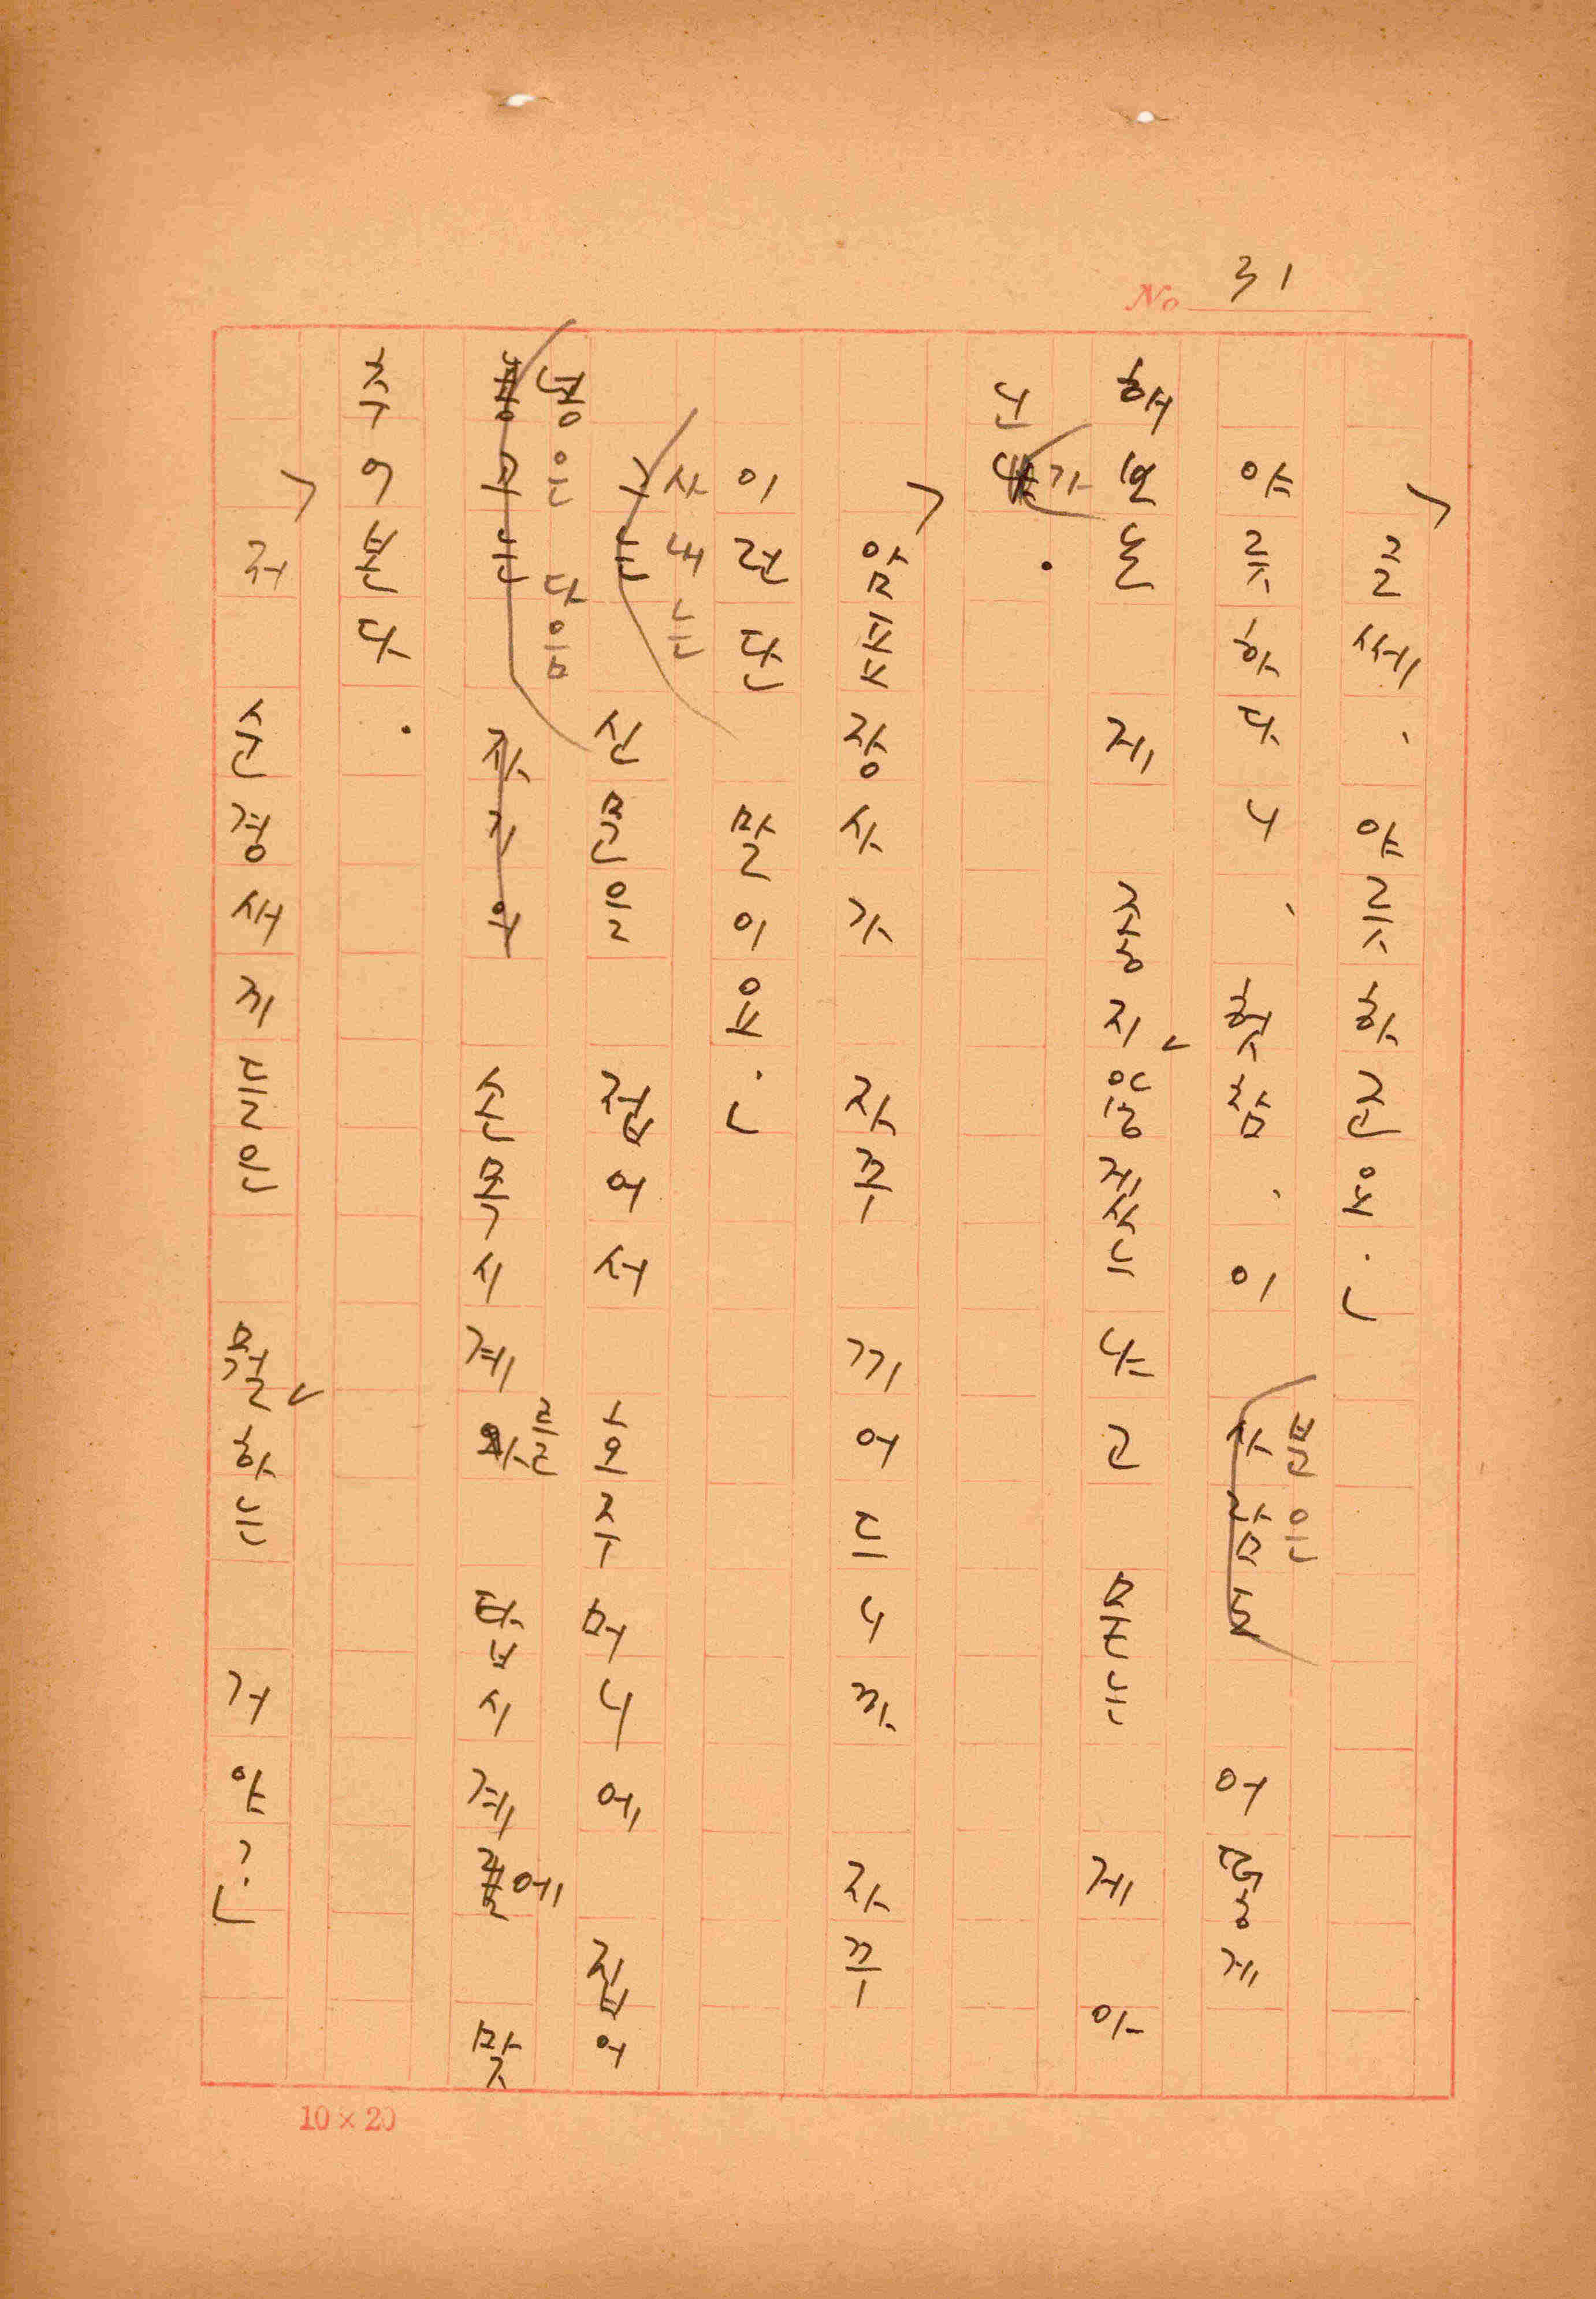 31
「글쎄、야릇하군요.」
야릇하다니、헛참、이 분은 어떻게
해 보는 게 좋지 않겠느냐고 묻는 게 아
닌가.
「암표 장사가 자꾸 끼어드니까 자꾸
이런단 말이요.」
사내는 신문을 접어서 호주머니에 집어
넣은 다음 손목시계를 탑시계에 맞
추어본다.
「저 순경새끼들은 뭘 하는 거야?」
No
10×20